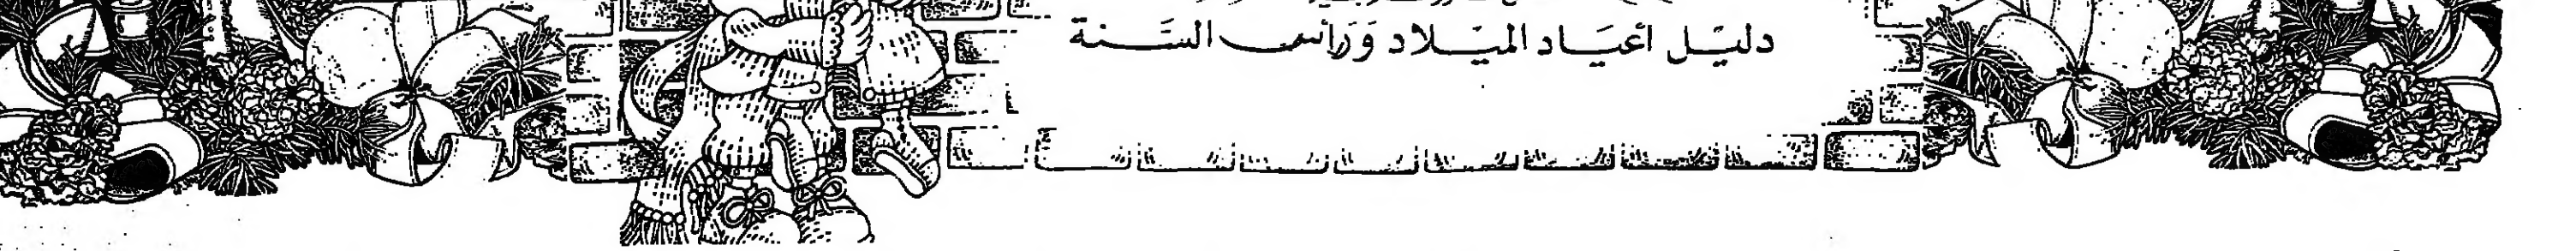 دليل أعياد الميلاد ورأس السنة